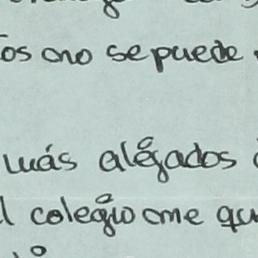 os o no se puede
más alejados
colegio o me qu